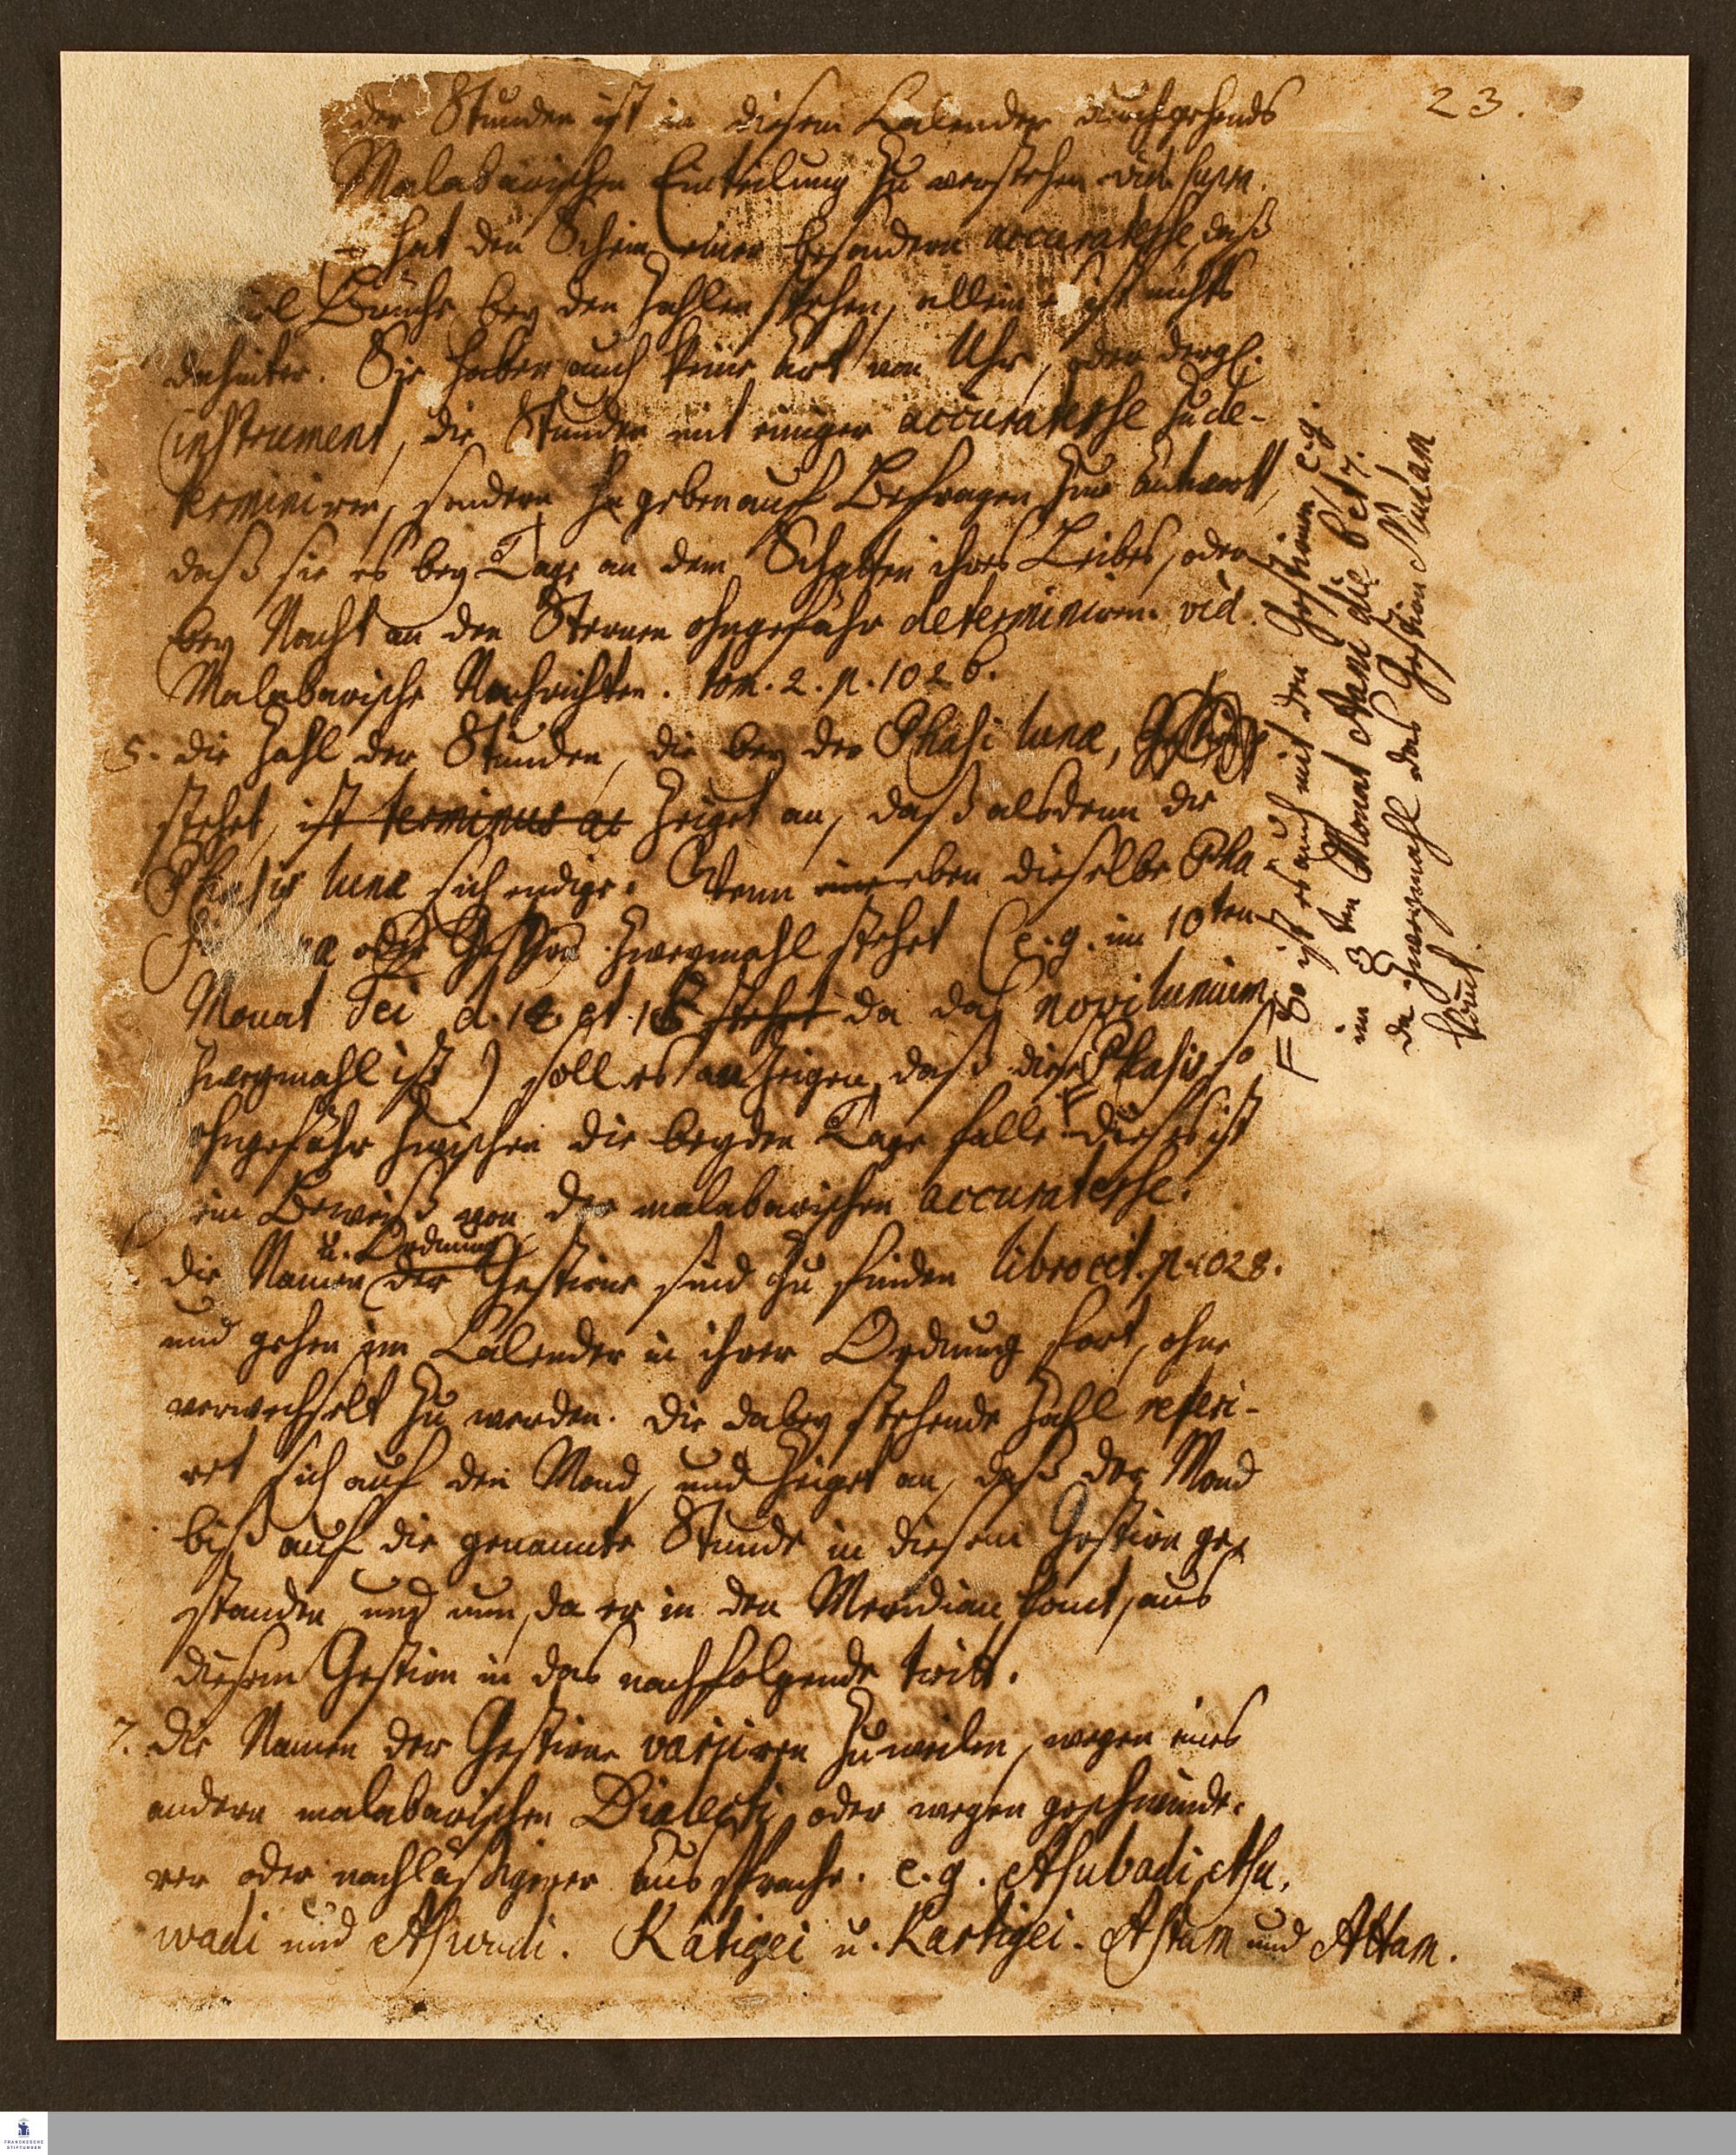 23.
der Stunden ist in diesem Calender durchgehends
Malabarischen Einteilung zu verstehen vid. supr.
hat den Schein einer besondern accuratesse, daß
Brüche bey den Zahlen stehen, allein ist nichts
dahinter. Sie haben auch keine Art von Uhr, oder dergl.
instrument, die Stunden mit einiger accuratesse zu de-
terminiren, sondern geben auf Befragen zur Antwort,
daß sie es bey Tage an dem Schatten ihres Leibes, oder
bey Nacht an den Sternen ohngefähr determiniren. vid.
Malabarische Nachrichten. tom. 2. p. 1026.
5. die Zahl der Stunden, die bey der Phasi lunæ,
stehet, ist terminus ac zeiget an, daß alsdenn die
Phasis lunæ sich endige. Wenn eine eben dieselbe Pha-
oder Gestirn zweymahl stehet (e.g. im 10ten
Monat Tei d. et stehet da das novilunium
zweymahl ist) soll es anzeigen, daß diese Phasis so
ohngefähr zwischen die beyden Tage falle. F dieses ist
ein Beweiß von der malabarischen accuratesse.
u. Ordnung
die Namen der Gestirne sind zu finden libro cit. p. 1028.
und gehen im Calender in ihrer Ordnung fort, ohne
verwechselt zu werden. die dabey stehende Zahl referi-
ret sich auf den Mond, und zeiget an, daß der Mond
biß auf die genannte Stunde in diesem Gestirn ge-
standen und nun, da er in den Meridian komt, aus
diesem Gestirn in das nachfolgende tritt.
7. die Namen der Gestirne variiren zuweilen, wegen eines
andern malabarischen Dialecti, oder wegen geschwinde-
rer oder nachläßigerer Aussprache. e.g. Asubadi, Asu-
wadi und Aswadi. Kátigei u. Kartigei. Astam und Attam.
F So ist es auch mit den Gestirnen e.g.
im 3ten Monat Ani die 6 et 7.
da zweymahl das Gestirn Mulam
komt
FRANCKESCHE
STIFTUNGEN